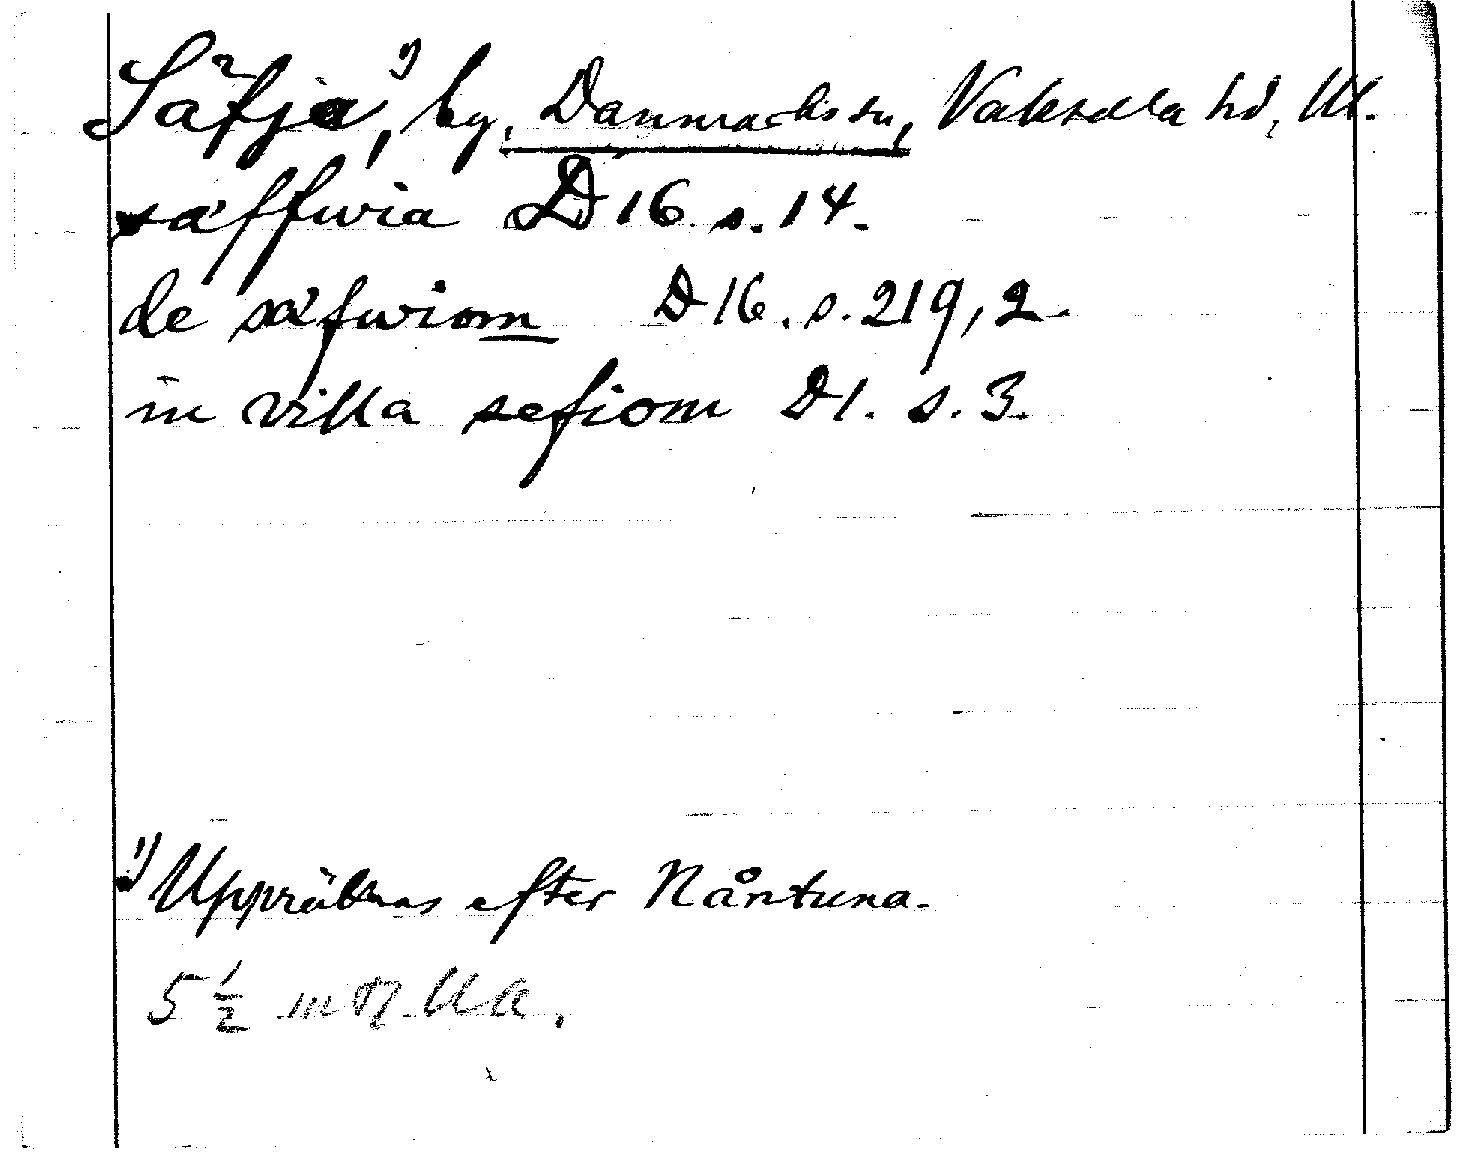 Säfja¹⁾, by, Danmarks sn, Vaksala hd, Ul.
säffwia D 16 s. 14.
de säfwiom D 16. s. 219, 2.
in villa sefiom D 1. s. 3.
¹⁾ Uppräknas efter Nåntuna.
5 ½